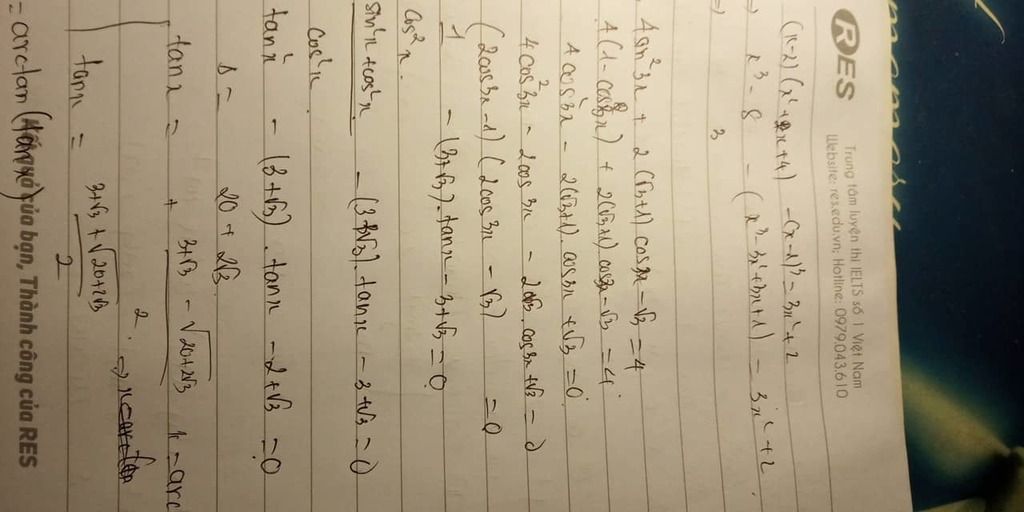 RES
Trung tâm luyện thi IELTS số 1 Việt Nam
Website: res.edu.vn. Hotline: 0979.043.610
(x-2)(x²+2x+4) - (x-1)³ - 3x² + 2
=) x³ - 8 - (x³ - 3x² + 3x + 1) - 3x² + 2
=) 3
4 sin² 3x + 2(√3+1) cos 3x - √3 = 4
4(1 - cos² 3x) + 2(√3+1) cos 3x - √3 = 4
4 cos² 3x - 2(√3+1). cos 3x + √3 = 0
4 cos² 3x - 2cos 3x - 2√3 cos 3x + √3 = 0
(2cos 3x - 1)(2cos 3x - √3) = 0
1/cos² x - (3+√3). tan x - 3 + √3 = 0
(sin² x + cos² x)/cos² x - (3+√3). tan x - 3 + √3 = 0
tan² x - (3+√3). tan x - 2 + √3 = 0
Δ = 20 + 2√3
tan x = + (3+√3 - √(20+2√3))/2 = arc
tan x = (3+√3 + √(20+2√3))/2
= arctan (tan x)
quả của bạn, Thành công của RES